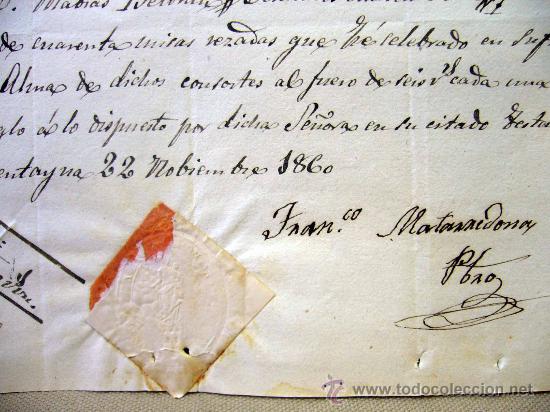 de cuarenta misas rezadas que hé celebrado en suf
Alma de dichos consortes al fuero de seis rs. cada una
glo á lo dispuesto por dicha Señora en su citado testa
entayna 22 Nobiembre 1860
Fran.co Mataredona
Pbro
www.todocoleccion.net